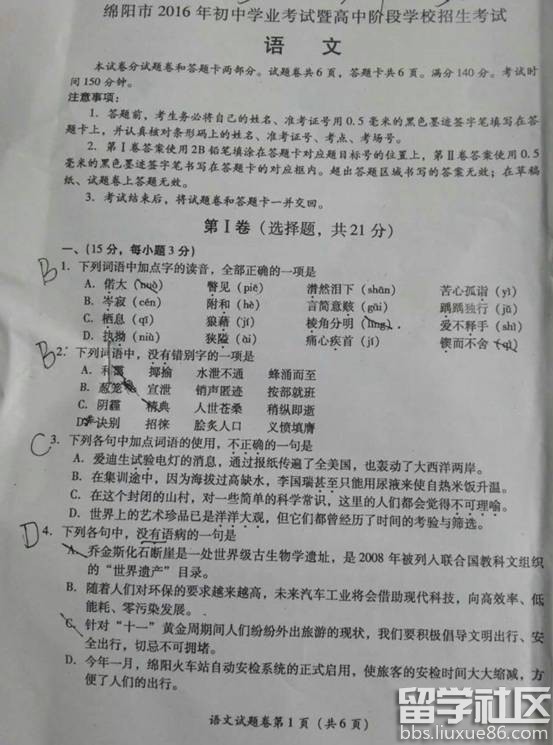 绵阳市 2016 年初中学业考试暨高中阶段学校招生考试
语 文
本试卷分试题卷和答题卡两部分。试题卷共6页，答题卡共6页。满分140分。考试时
间150分钟。
注意事项：
1. 答题前，考生务必将自己的姓名、准考证号用0.5毫米的黑色墨迹签字笔填写在答
题卡上，并认真核对条形码上的姓名、准考证号、考点、考场号。
2. 第Ⅰ卷答案使用2B铅笔填涂在答题卡对应题目标号的位置上，第Ⅱ卷答案使用0.5
毫米的黑色墨迹签字笔书写在答题卡的对应框内。超出答题区域书写的答案无效；在草稿
纸、试题卷上答题无效。
3. 考试结束后，将试题卷和答题卡一并交回。
第Ⅰ卷（选择题，共21分）
一、（15分，每小题3分）
B 1. 下列词语中加点字的读音，全部正确的一项是
A. 偌大（nuò） 瞥见（piē） 潸然泪下（shān） 苦心孤诣（yì）
B. 岑寂（cén） 附和（hè） 言简意赅（gāi） 踽踽独行（jǔ）
C. 栖息（qī） 狼藉（jí） 棱角分明（líng） 爱不释手（shì）
D. 执拗（niù） 狭隘（ài） 痛心疾首（jí） 锲而不舍（qì）
B 2. 下列词语中，没有错别字的一项是
A. 利 揶揄 水泄不通 蜂涌而至
B. 葱笼 宣泄 销声匿迹 按部就班
C. 阴霾 精典 人世苍桑 稍纵即逝
D. 诀别 招徕 脍炙人口 义愤填膺
C 3. 下列各句中加点词语的使用，不正确的一句是
A. 爱迪生试验电灯的消息，通过报纸传遍了全美国，也轰动了大西洋两岸。
B. 在集训途中，因为海拔过高缺水，李国瑞甚至只能用尿液来使自热米饭升温。
C. 在这个封闭的山村，对一些简单的科学常识，这里的人们都会觉得不可理喻。
D. 世界上的艺术珍品已是洋洋大观，但它们都曾经历了时间的考验与筛选。
D 4. 下列各句中，没有语病的一句是
A. 乔金斯化石断崖是一处世界级古生物学遗址，是 2008 年被列入联合国教科文组织
的“世界遗产”目录。
B. 随着人们对环保的要求越来越高，未来汽车工业将会借助现代科技，向高效率、低
能耗、零污染发展。
C. 针对“十一”黄金周期间人们纷纷外出旅游的现状，我们要积极倡导文明出行、安
全出行，切忌不可拥堵。
D. 今年一月，绵阳火车站自动安检系统的正式启用，使旅客的安检时间大大缩减，方
便了人们的出行。
语文试题卷第 1 页（共 6 页）
留学社区
bbs.liuxue86.com